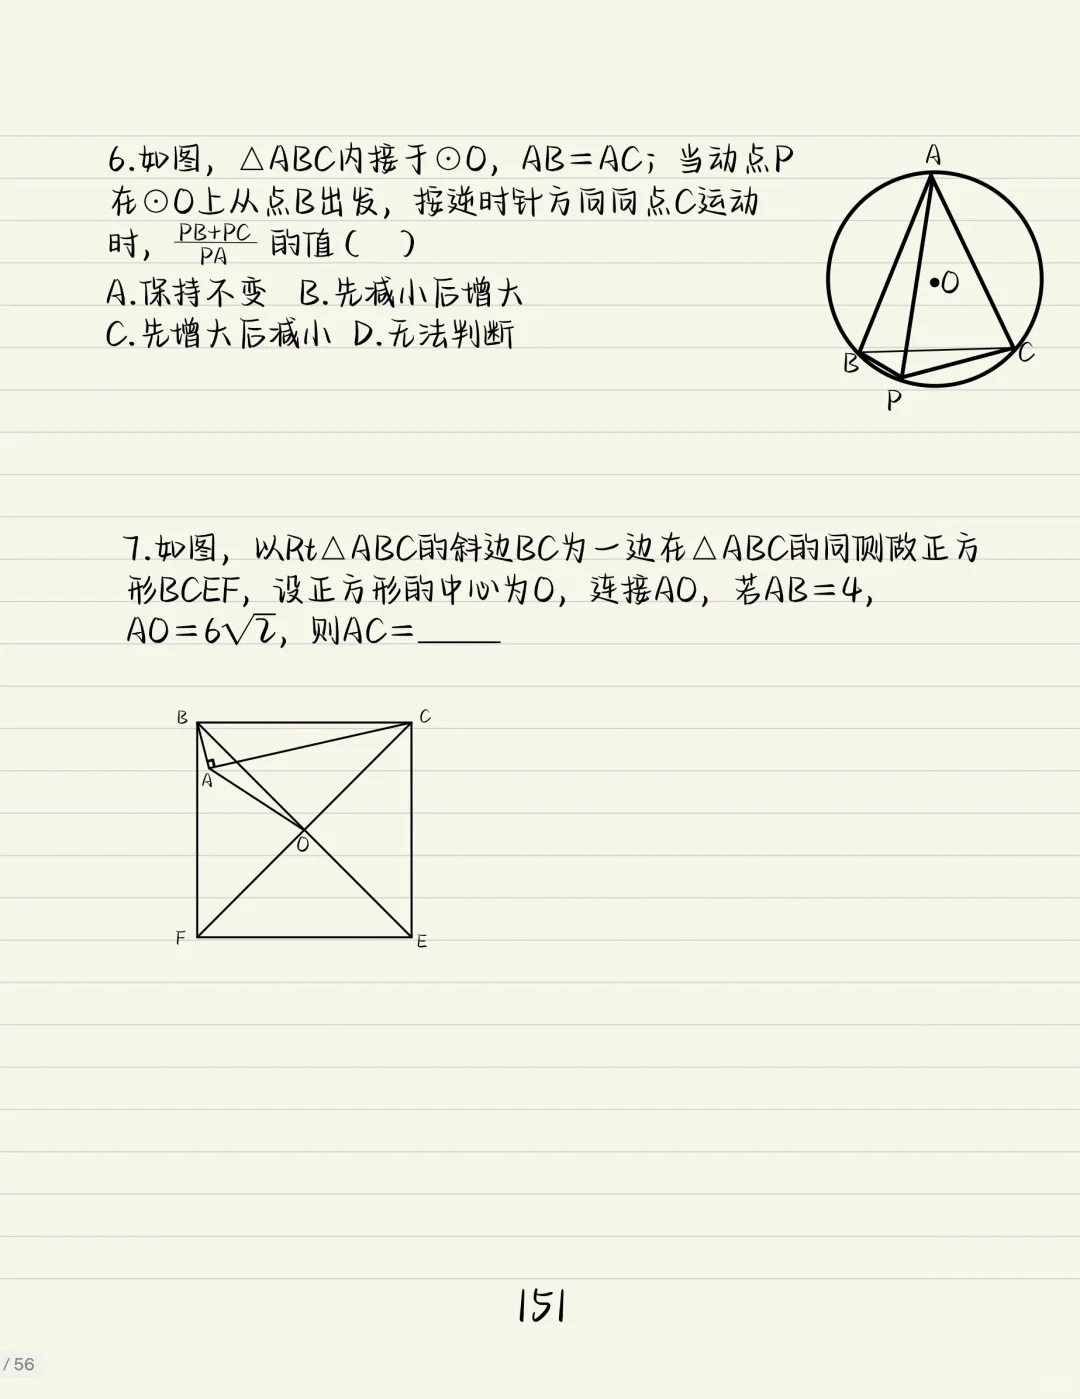 6.如图，△ABC内接于⊙O，AB=AC；当动点P
在⊙O上从点B出发，按逆时针方向向点C运动
时，(PB+PC)/PA 的值（ ）
A.保持不变 B.先减小后增大
C.先增大后减小 D.无法判断
A
O
B
C
P
7.如图，以Rt△ABC的斜边BC为一边在△ABC的同侧做正方
形BCEF，设正方形的中心为O，连接AO，若AB=4，
AO=6√2，则AC=_____
B
C
A
O
F
E
151
/ 56